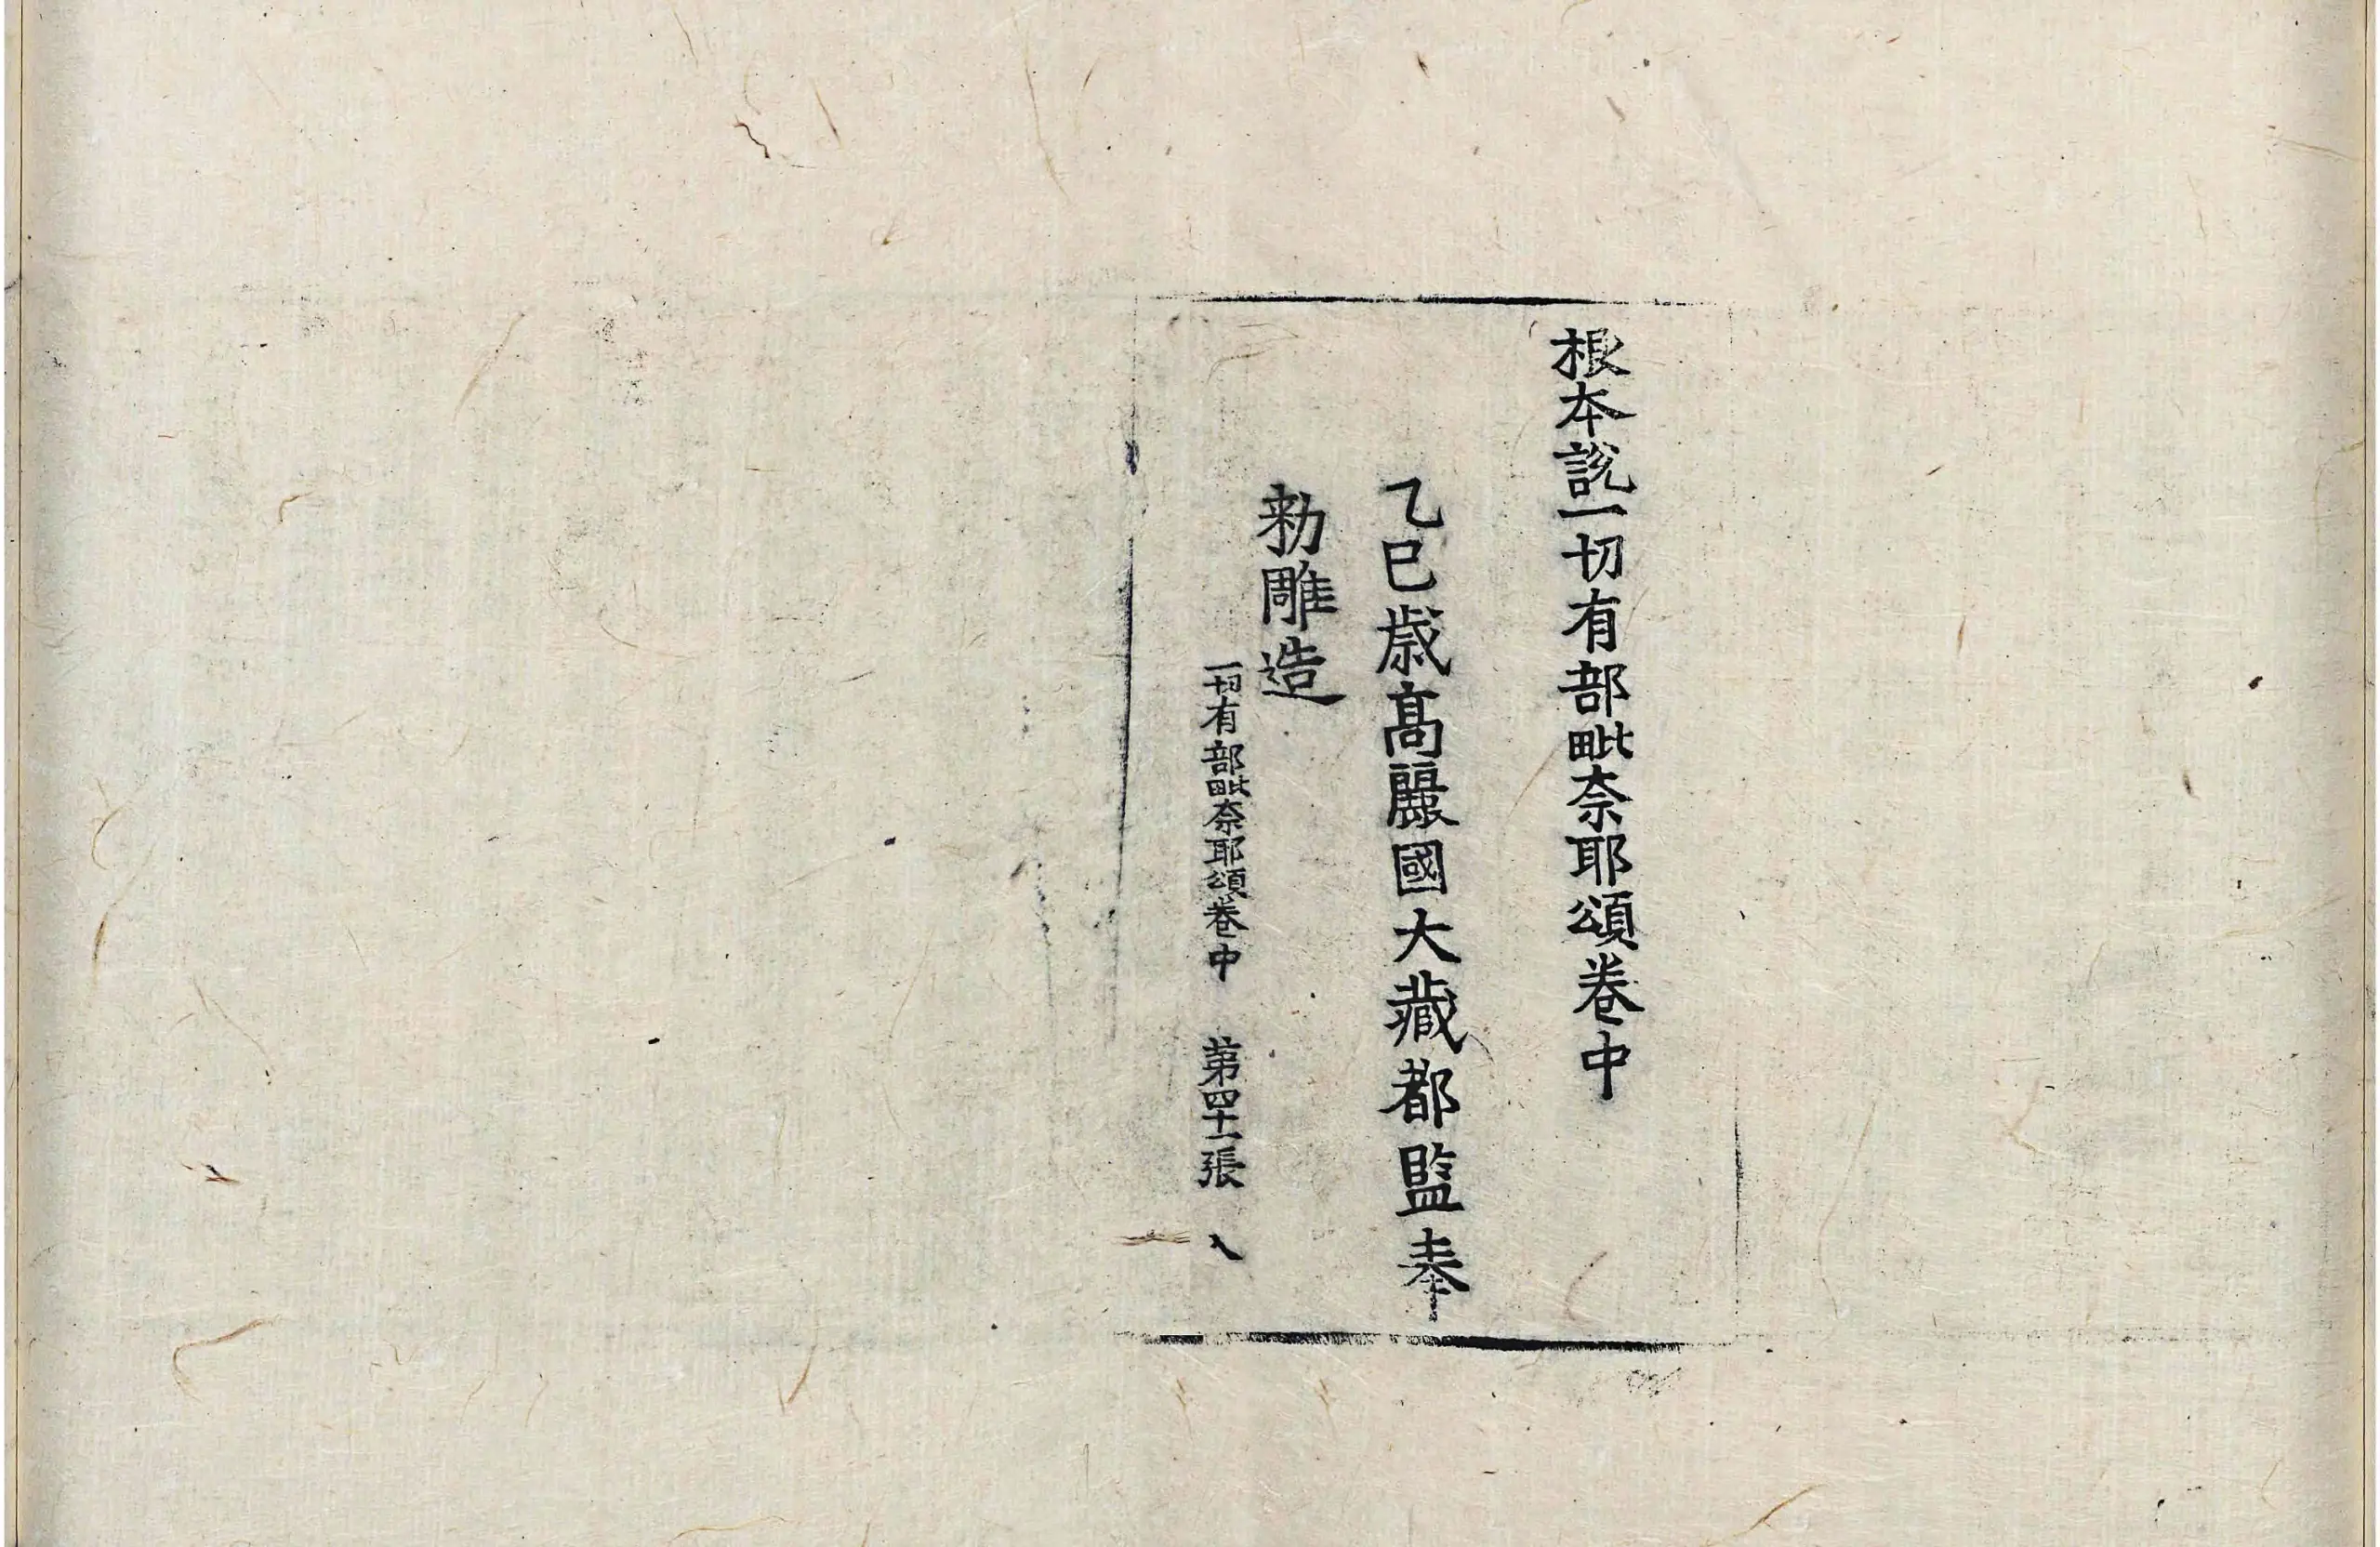 根本說一切有部毗奈耶頌卷中
乙巳歲高麗國大藏都監奉
勑雕造
一切有部毗奈耶頌卷中 第四十一張 入